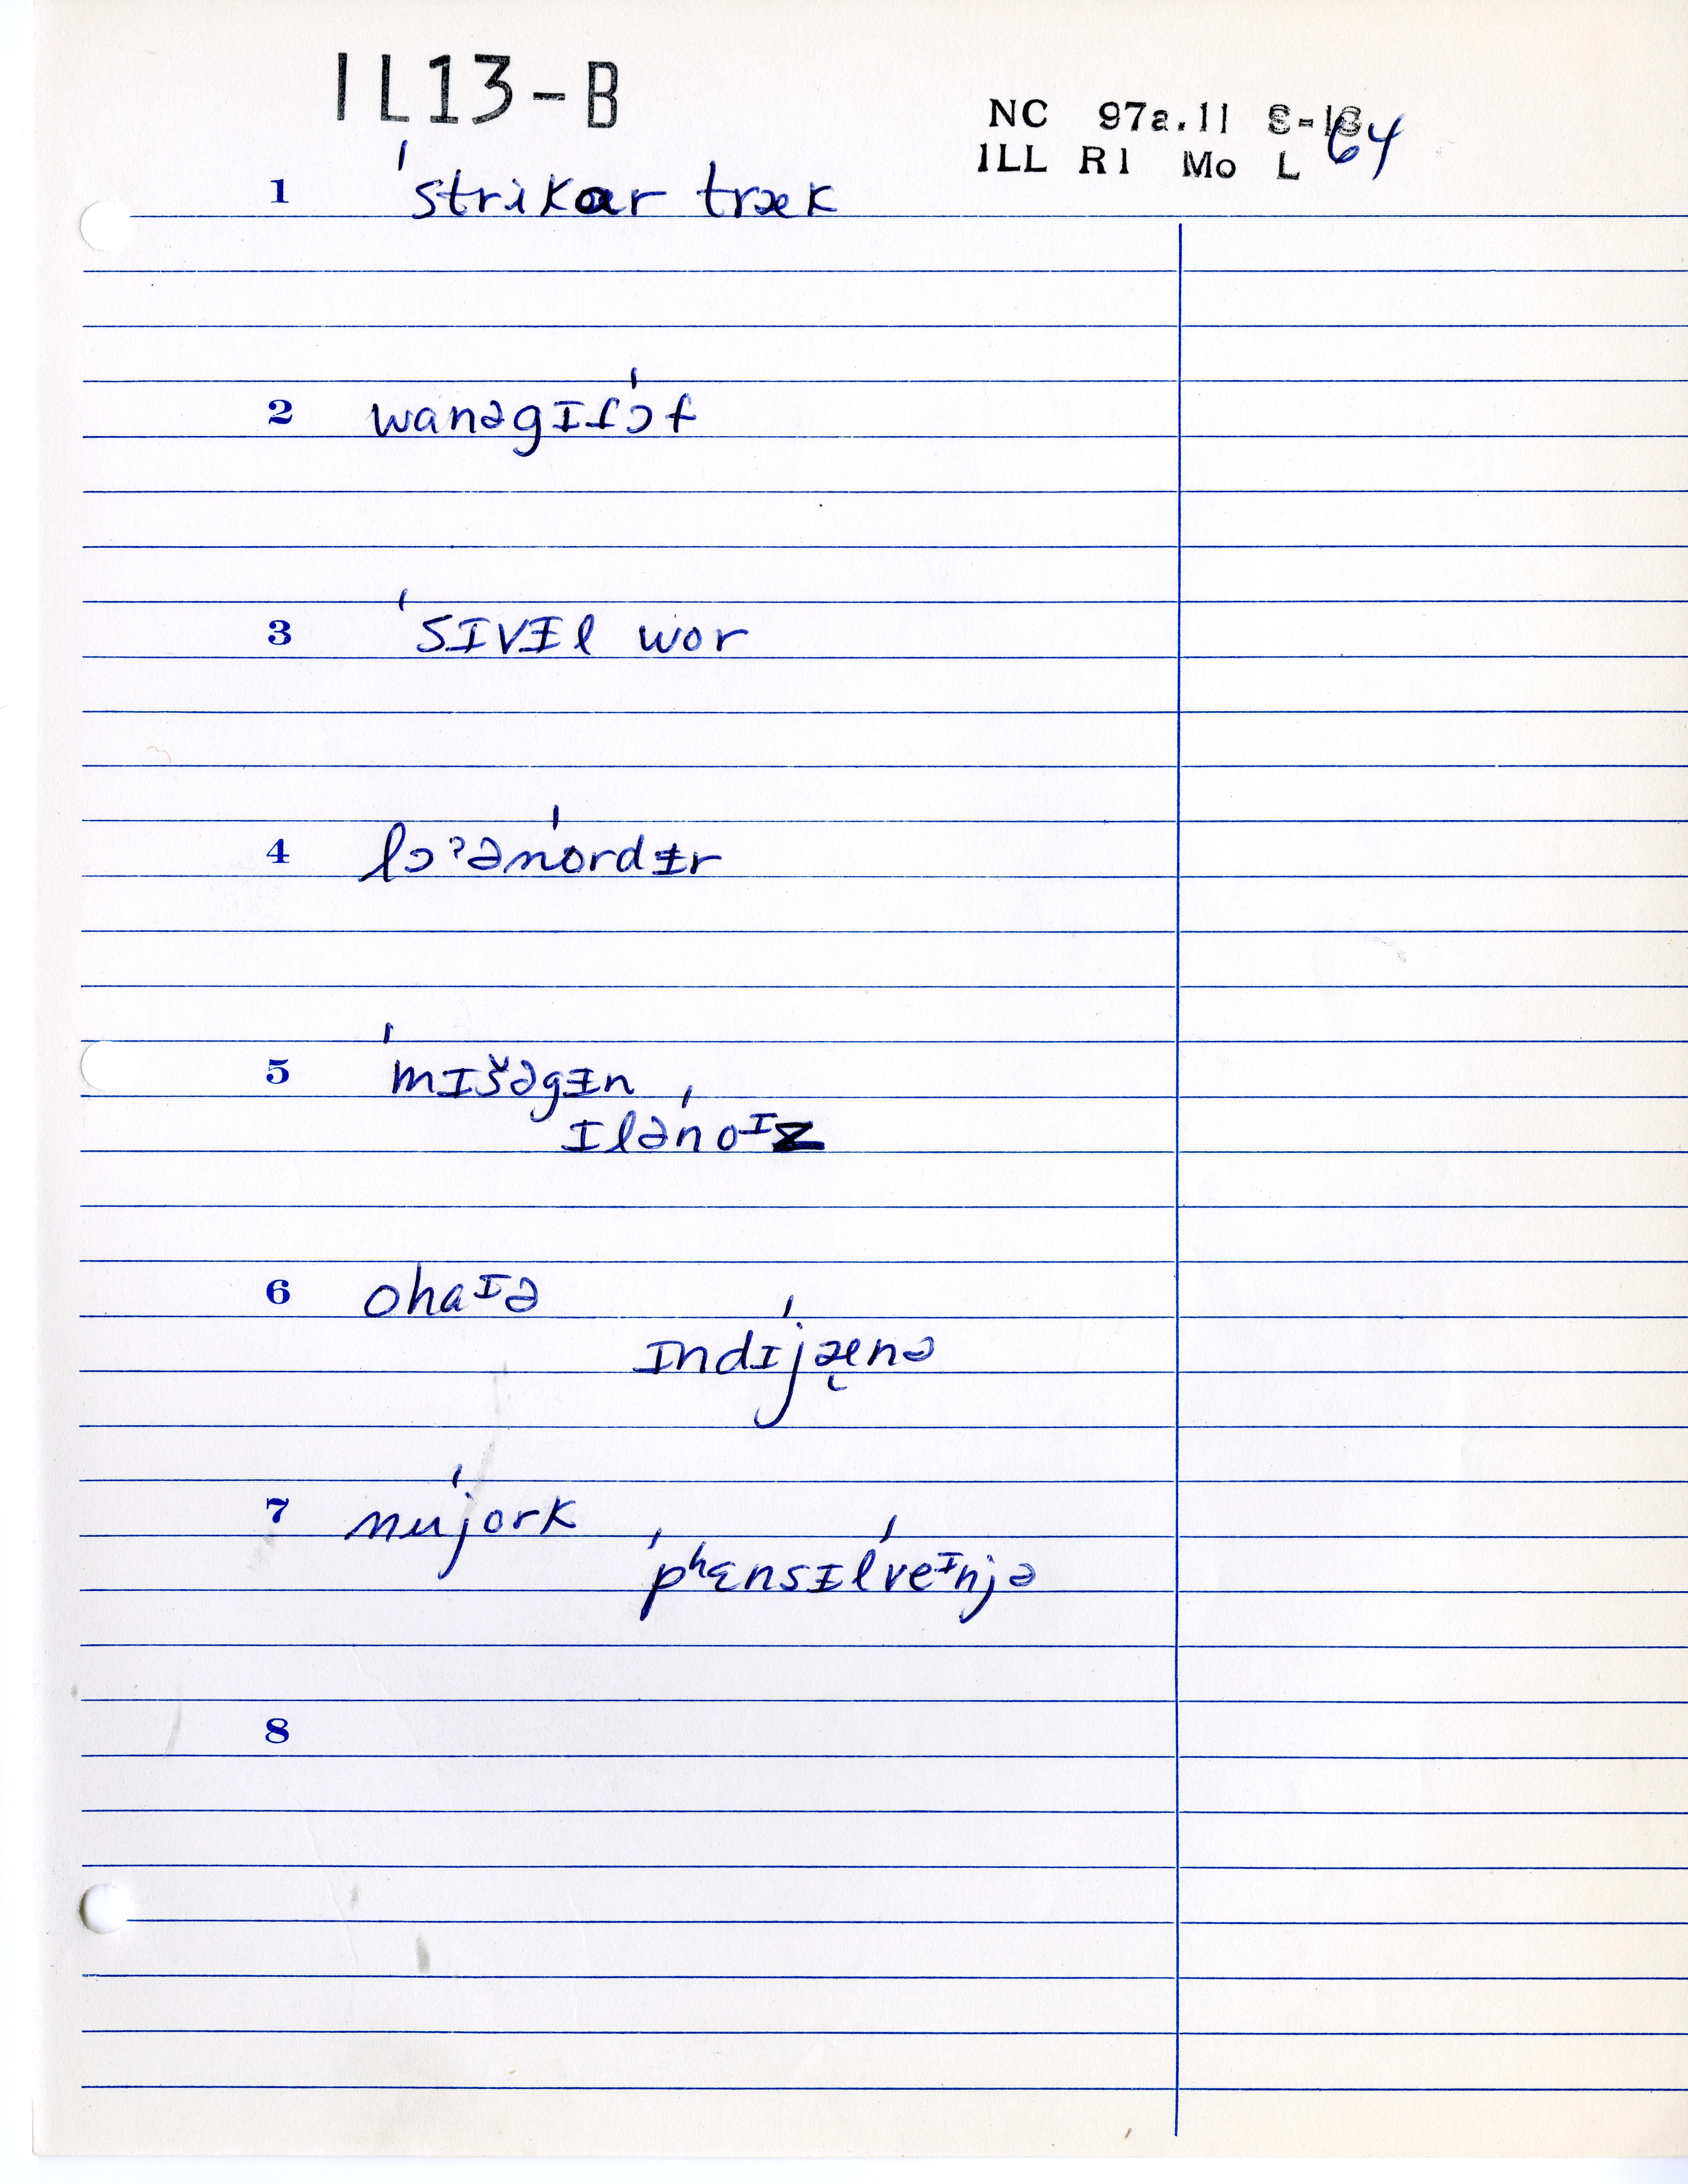 IL13-B
NC 97a.11 S-13 64
ILL R1 Mo L
1 ˈstrikɑr træk
2 wanəgɪɾˈɔf
3 ˈsɪvɪ̵l wor
4 lɔˀənˈordɪ̵r
5 ˈmɪšəgɪ̵n
ɪlənˈoᶦz
6 ohaᶦə
ɪndɪˈjæ̨nə
7 nuˈjork
ˌpʰɛnsɪ̵lˈveᶦnjə
8